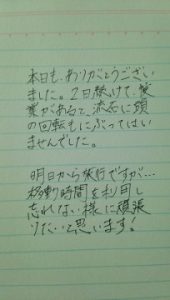 本日も、ありがとうござい
ました。2日続けて、授
業があると、流石に頭
の回転もにぶってはい
ませんでした。
明日から旅行ですが…
移動時間を利用し
忘れない様に頑張
りたいと思います!